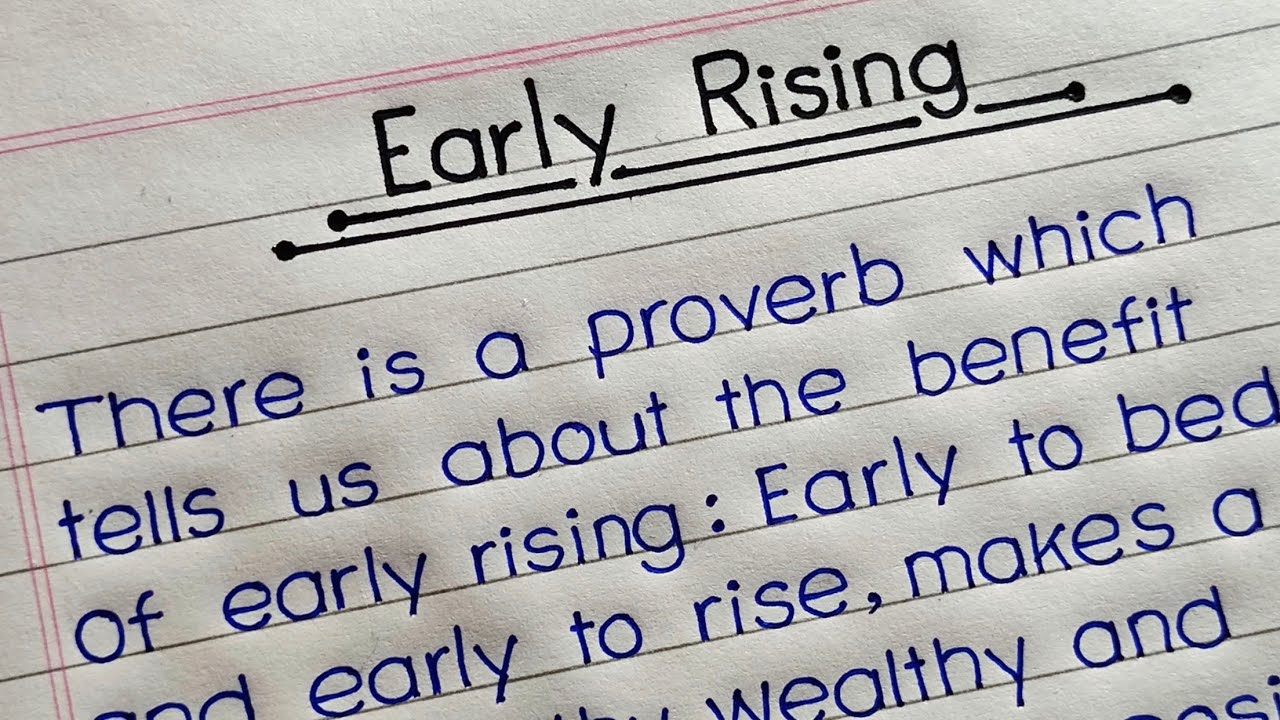 Early Rising
There is a proverb which
tells us about the benefit
of early rising: Early to bed
and early to rise, makes a
wealthy and